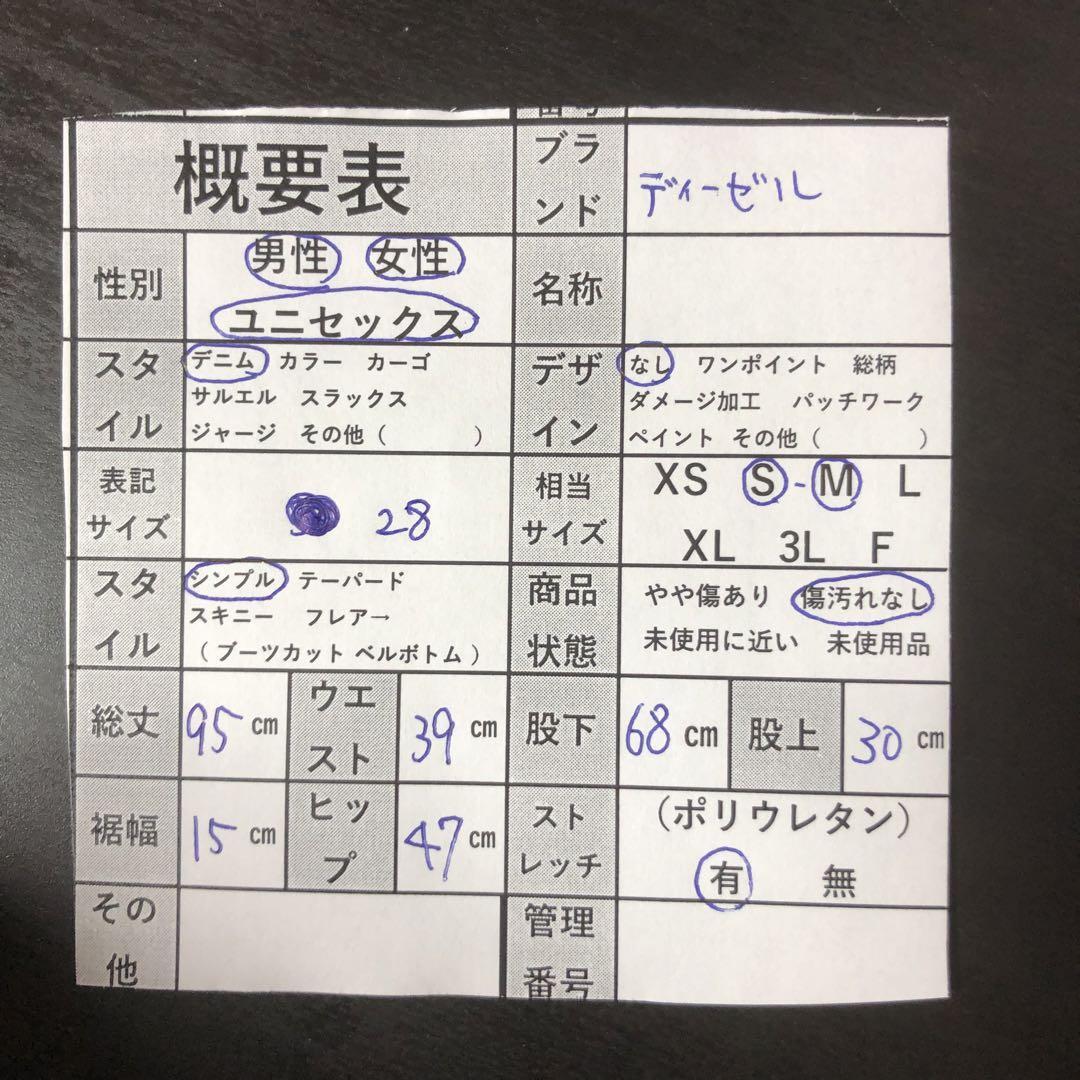 概要表
ブランド ディーゼル
性別 男性 女性
ユニセックス
名称
スタイル デニム カラー カーゴ
サルエル スラックス
ジャージ その他（ ）
デザイン なし ワンポイント 総柄
ダメージ加工 パッチワーク
ペイント その他（ ）
表記サイズ 28
相当サイズ XS S-M L
XL 3L F
スタイル シンプル テーパード
スキニー フレア→
（ブーツカット ベルボトム）
商品状態 やや傷あり 傷汚れなし
未使用に近い 未使用品
総丈 95 cm ウエスト 39 cm 股下 68 cm 股上 30 cm
裾幅 15 cm ヒップ 47 cm
ストレッチ （ポリウレタン）
有 無
その他
管理番号